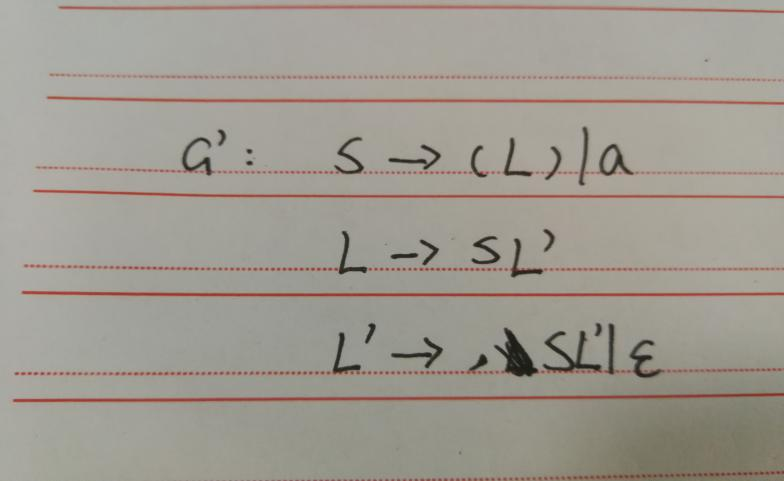 G': S → (L) | a
L → SL'
L' → , SL' | ε